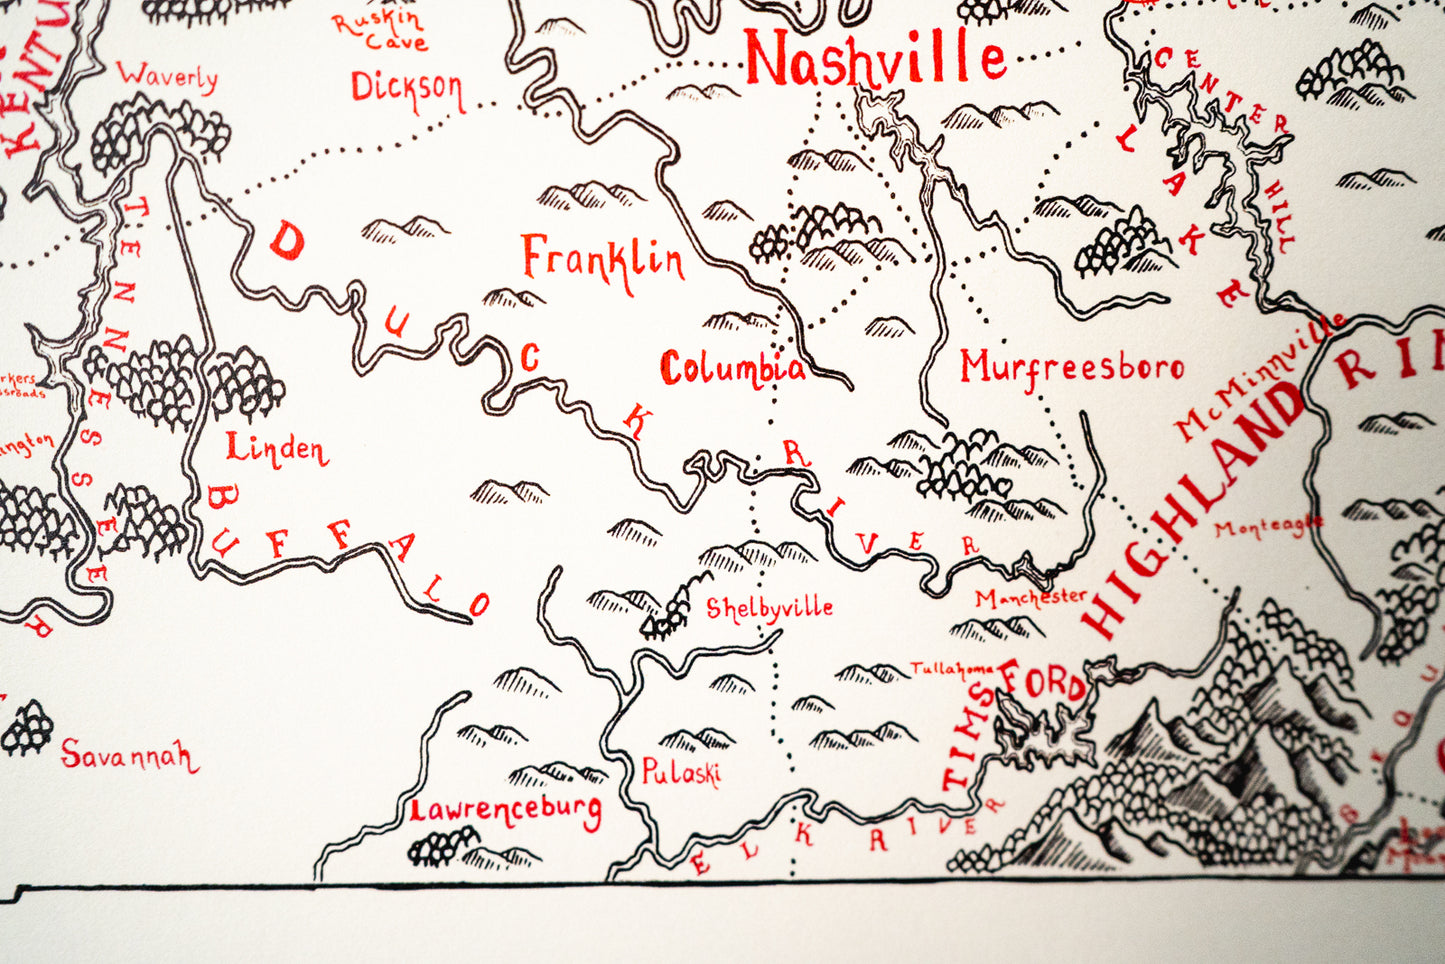 KENTU
Waverly
Ruskin
Cave
Dickson
Nashville
CENTER
HILL
LAKE
TENNESSEE
R
DUCK RIVER
Franklin
Columbia
Murfreesboro
McMinnville
HIGHLAND RIM
Linden
BUFFALO
Monteagle
Shelbyville
Manchester
Tullahoma
TIMS FORD
Savannah
Pulaski
Lawrenceburg
ELK RIVER